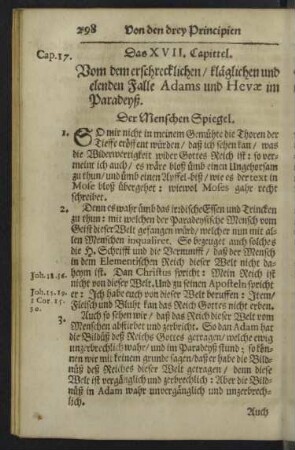 298 Von den drey Principien
Cap. 17. Das XVII. Capittel.
Vom dem erschrecklichen / kläglichen und
elenden Falle Adams und Hevæ im
Paradeyß.
Der Menschen Spiegel.
1. SO mir nicht in meinem Gemühte die Thoren der
Tieffe eröffent würden / daß ich sehen kan / was
die Widerwertigkeit wider Gottes Reich ist: so ver-
meint ich auch / es wäre bloß umb einen Ungehorsam
zu thun / und umb einen Apffel-biß / wie es der text in
Mose bloß übergehet: wiewol Moses gahr recht
schreibet.
2. Denn es wahr umb das irrdische Essen und Trincken
zu thun: mit welchen der Paradeysische Mensch vom
Geist dieser Welt gefangen würd / welcher nun mit al-
len Menschen inqualiret. So bezeuget auch solches
die H. Schrifft und die Vernunfft / daß der Mensch
in dem Elementerischen Reich dieser Welt nicht da-
Joh. 18. 36. heym ist. Dan Christus spricht: Mein Reich ist
nicht von dieser Welt. Und zu seinen Aposteln spricht
Joh. 15. 19. er: Ich habe euch von dieser Welt beruffen: Item/
1 Cor. 15. Fleisch und Bluht kan das Reich Gottes nicht erben.
50.
3. Auch so sehen wir / daß das Reich dieser Welt vom
Menschen abstirbet und zerbricht. So dan Adam hat
die Bildüß deß Reichs Gottes getragen / welche ewig
unzerbrechlich wahr / und im Paradeyß stund; so kön-
nen wir mit keinem grunde sagen / daß er habe die Bild-
nüß deß Reiches dieser Welt getragen / denn diese
Welt ist vergänglich und zerbrechlich: Aber die Bild-
nüß in Adam wahr unvergänglich und unzerbrech-
lich.
Auch